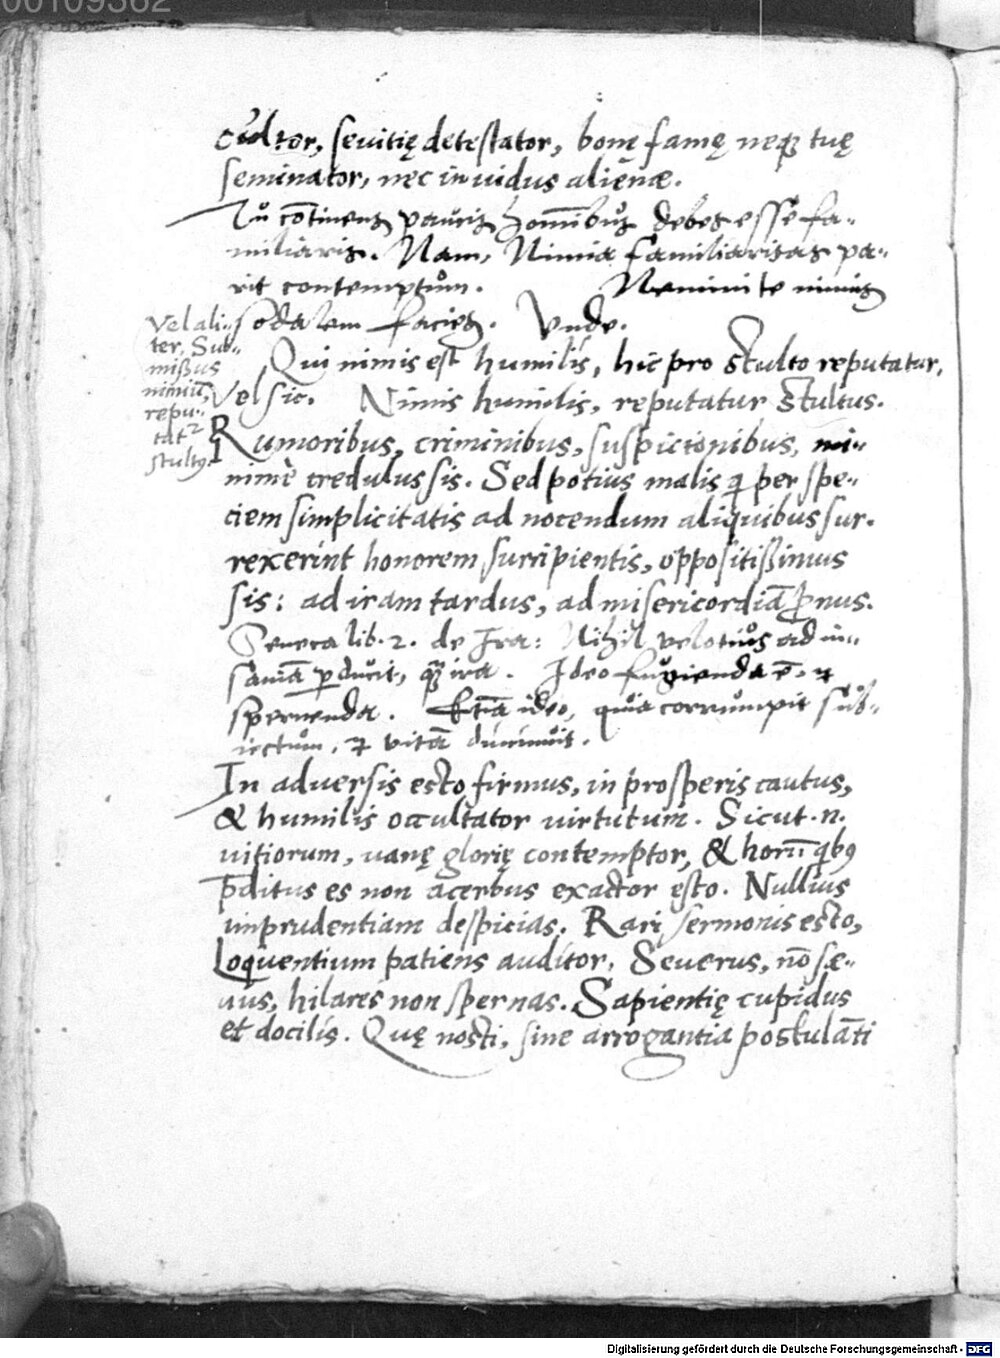 00109362
cultor, sęvitię detestator, bonę famę neqꝫ tuę
seminator, nec invidus alienæ.
Tu cōtinens paucis hominibus debes esse fa-
miliaris. Nam, Nimia familiaritas pa-
rit contemptum. Nemini te nimis
sodalem facies. Unde.
Qui nimis est humilis, hic pro stulto reputatur,
Vel sic. Nimis humilis, reputatur stultus.
Vel ali-
ter. Sub-
missus
nimiū,
repu-
tat²
stultꝰ.
Rumoribus, criminibus, suspicionibus, mi-
nimè credulus sis. Sed potius malis q̄ per spe-
ciem simplicitatis ad nocendum aliquibus sur-
rexerint honorem surripientis, oppositissimus
sis: ad iram tardus, ad misericordiā ꝓnus.
Seneca lib. 2. de Ira: Nihil velotius ad in-
saniā ꝑducit, quā ira. Ideo fugienda ē, ⁊
spernenda. Etiā ideo, quia corrumpit sub-
iectum, ⁊ vitā diminuit.
In adversis esto firmus, in prosperis cautus,
& humilis occultator virtutum. Sicut .n.
vitiorum, vanę glorię contemptor, & horū qbꝰ
p̄ditus es non acerbus exactor esto. Nullius
imprudentiam despicias. Rari sermonis esto,
Loquentium patiens auditor, Severus, nō sæ-
vus, hilares non spernas. Sapientię cupidus
et docilis. Quę nosti, sine arrogantia postulāti
Digitalisierung gefördert durch die Deutsche Forschungsgemeinschaft - DFG